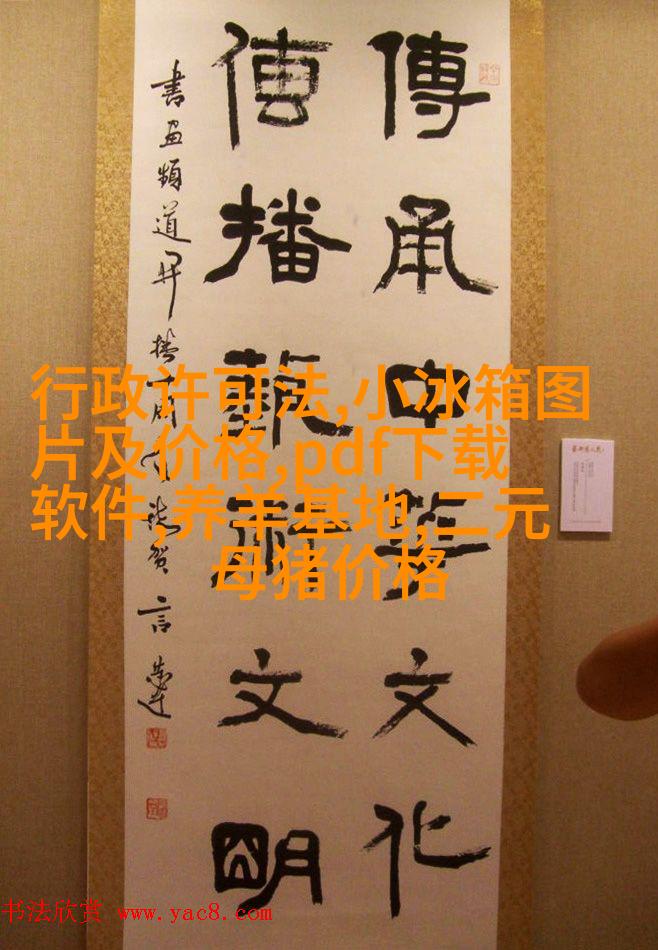 傳承中華文化
傳播藝術文明
書畫頻道開播十周年志賀 言恭達
行政许可法,小冰箱图
片及价格,pdf下载
软件,养羊基地,二元
母猪价格
书法欣赏 www.yac8.com